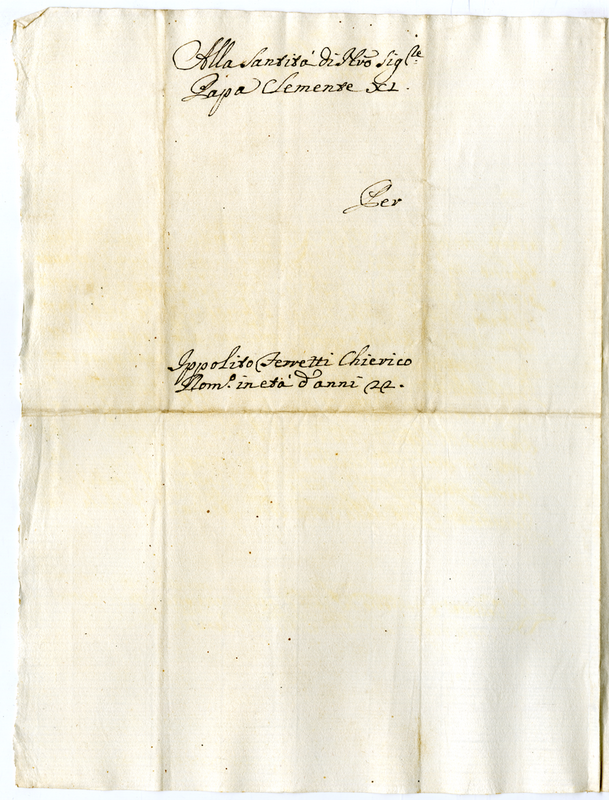 Alla Santitá di Nro Sigre
Papa Clemente XI.
Per
Ippolito Ferretti Chierico
Rom.o in etá d'anni 22.